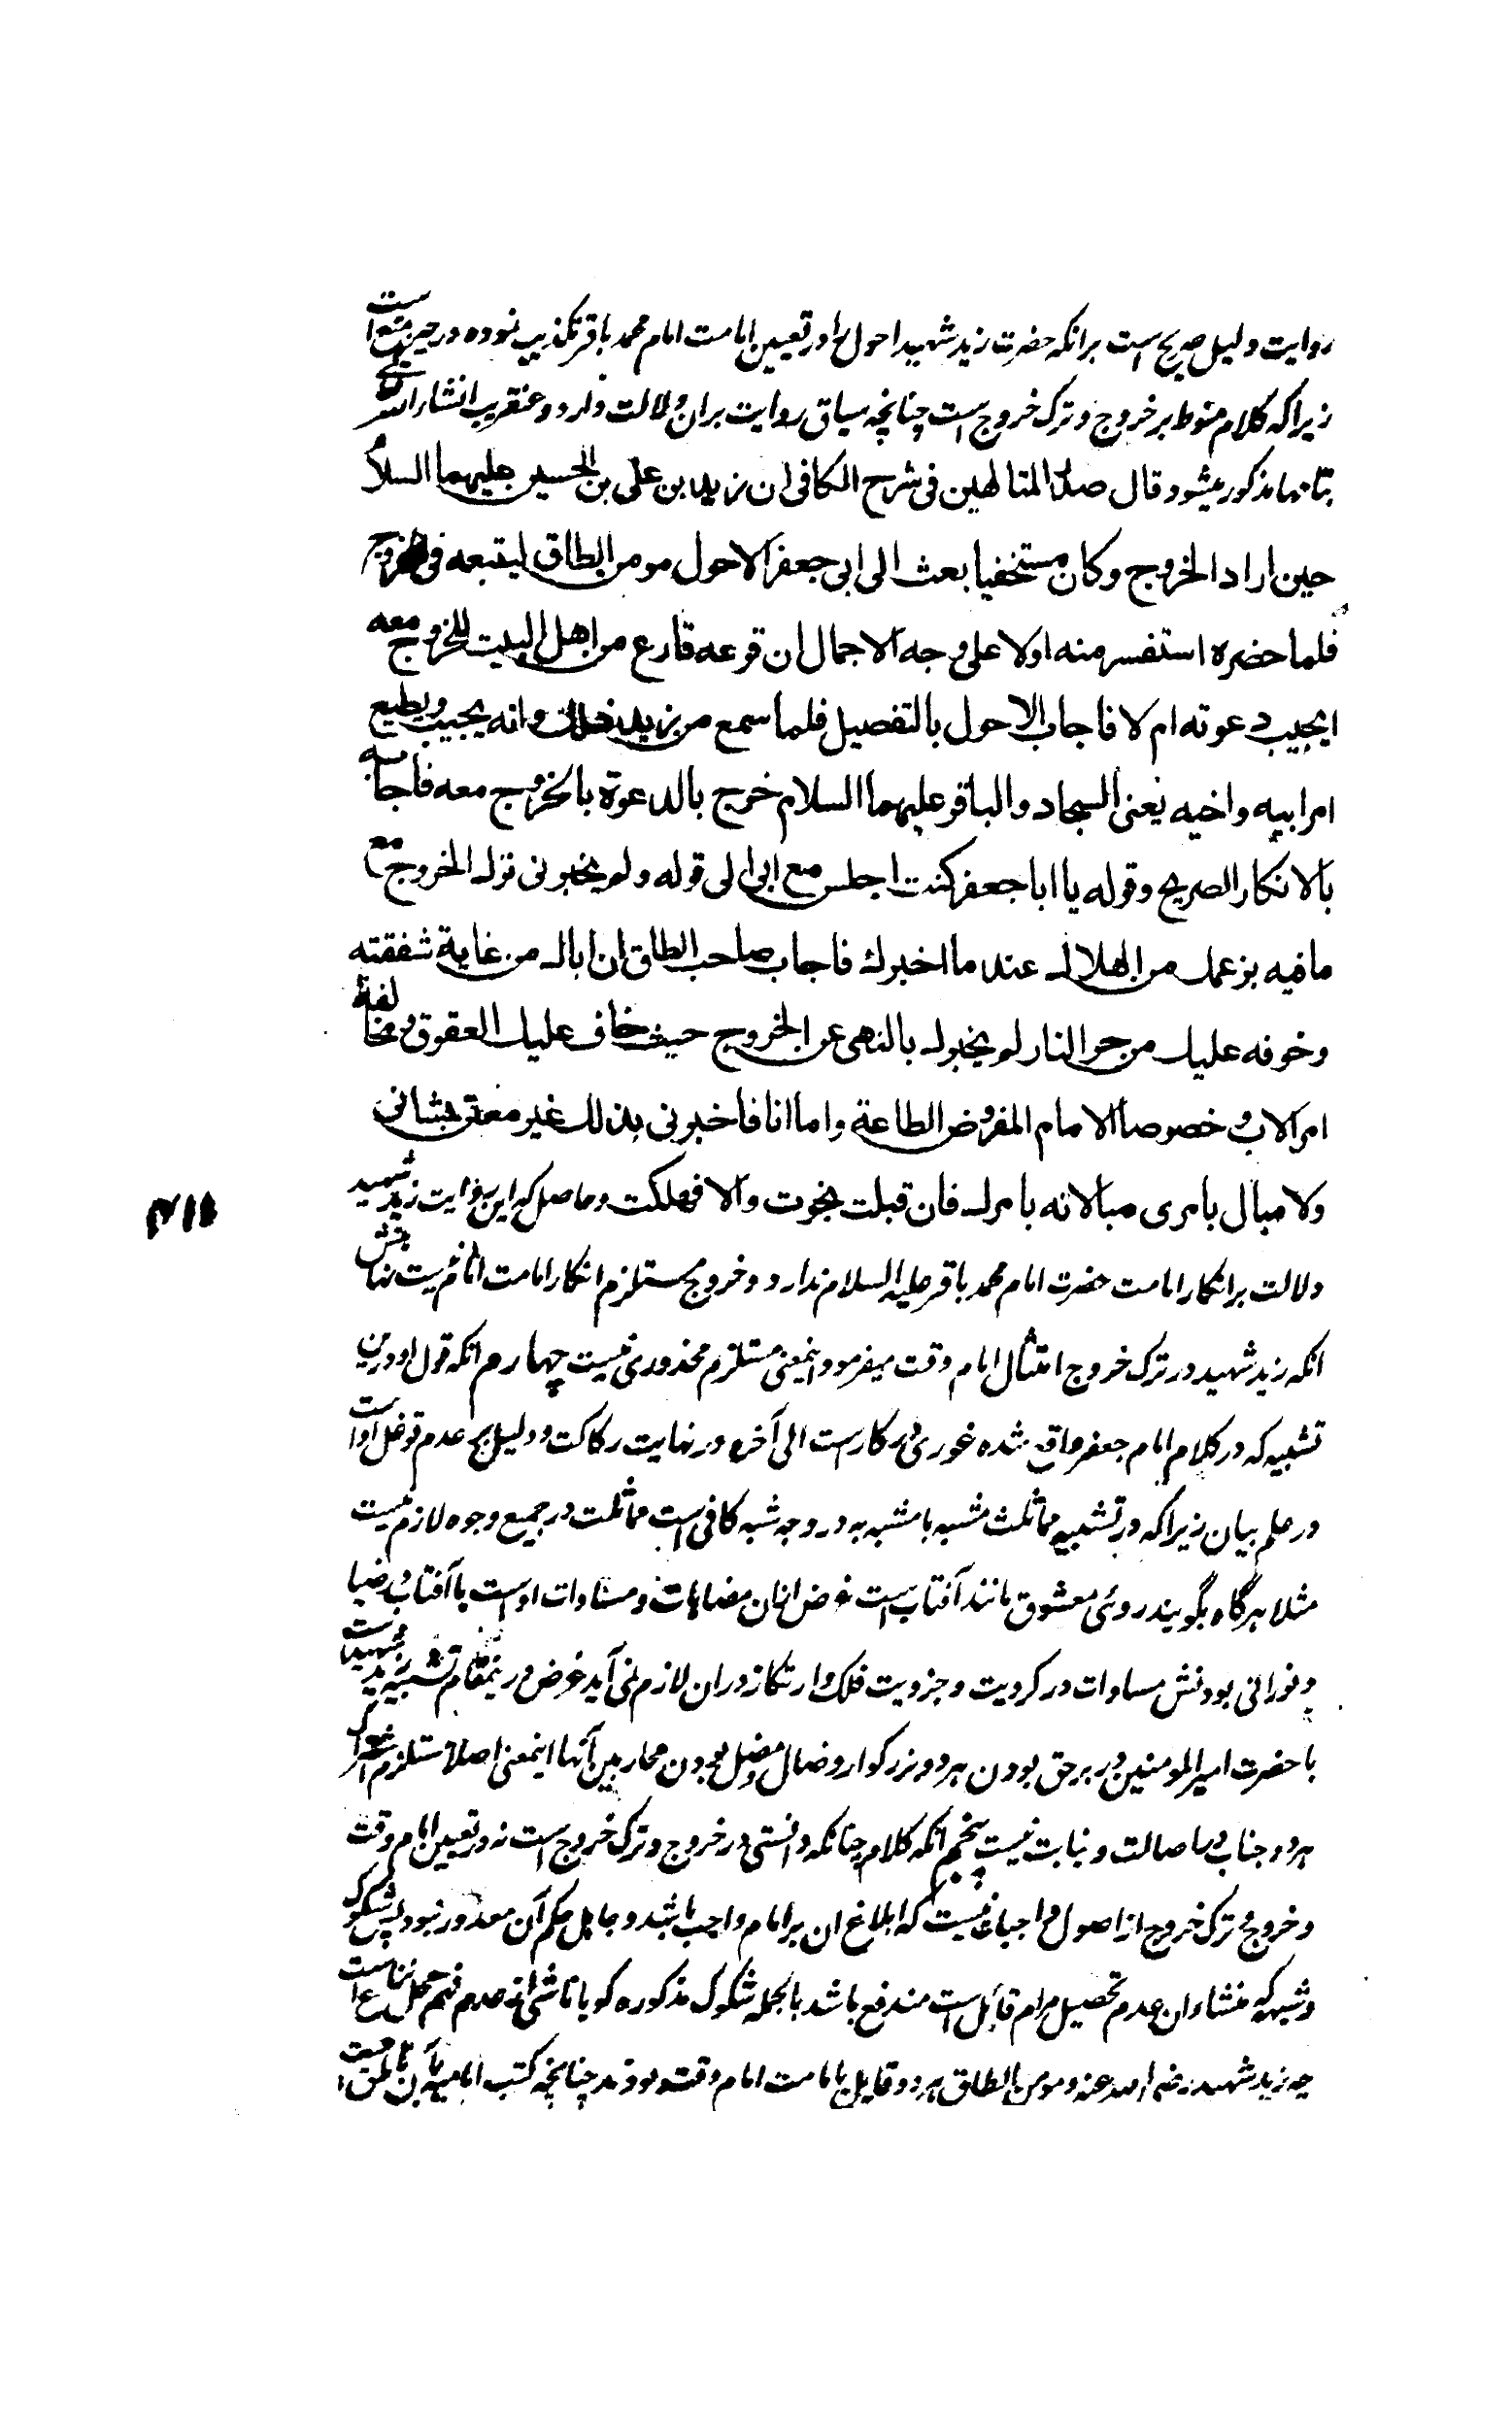 روایت دلیل صریح است برانکه حضرت زید شهید احول را در تعیین امامت امام محمد باقر تکذیب نموده در حیز منع است
زیرا که کلام منوط بر خروج و ترک خروج است چنانچه سیاق روایت بران دلالت دارد و عنقریب انشاء الله
بتمامها مذکور میشود قال صدر المتالهین فی شرح الکافی ان زید بن علی بن الحسین علیهما السلام
حین اراد الخروج وکان مستخفیا بعث الی ابی جعفر الاحول مومن الطاق لیتبعه فی الخروج
فلما حضره استفسر منه اولا علی وجه الاجمال ان قرعه قارع من اهل البیت للخروج معه
ایجیب دعوته ام لا فاجاب الاحول بالتفصیل فلما سمع من زید ذلک وانه یجیب ویطیع
امر ابیه واخیه یعنی السجاد والباقر علیهما السلام خرج بالدعوة بالخروج معه فاجابه
بالانکار الصریح وقوله یا ابا جعفر کنت اجلس مع ابی الی قوله ولم یخبرنی ترک الخروج مع
ما فیه بزعمک من الهلاک عند ما اخبرک فاجاب صاحب الطاق ان اباک من غایة شفقته
وخوفه علیک من حر النار لم یخبرک بالنهی عن الخروج حیث خاف علیک العقوق ومخالفة
امر الاب خصوصا الامام المفروض الطاعة واما انا فاخبرنی بذلک غیر معتن بشانی
ولا مبال بامری مبالاته بامرک فان قبلت نجوت والا فهلکت وحاصل که این روایت زید شهید
دلالت بر انکار امامت حضرت امام محمد باقر علیه السلام ندارد و خروج مستلزم انکار امامت ائمه نیست نهایتش
انکه زید شهید در ترک خروج امتثال امام وقت میفرمود اینمعنی مستلزم محذوری نیست چهارم انکه قول او درین
تشبیه که در کلام امام جعفر واقع شده غوری در کار است الی آخره در نهایت رکاکت و دلیل بر عدم توغل او است
در علم بیان زیرا که در تشبیه مماثلت مشبه با مشبه به در وجه شبه کافی است مماثلت در جمیع وجوه لازم نیست
مثلا هرگاه بگویند روئی معشوق مانند آفتاب است غرض ازان مضاهات و مساوات اوست با آفتاب در ضیا
و نورانی بودنش مساوات در کرویت و جزویت فلک و ارتکاز دران لازم نمی آید غرض درینمقام تشبیه زید شهید است
با حضرت امیر المومنین در برحق بودن هر دو بزرگوار و ضال و مضل بودن محاربین آنها اینمعنی اصلا مستلزم اشتراک
هر دو جناب در اصالت و نیابت نیست پنجم انکه کلام چنانکه دانستی در خروج و ترک خروج است نه در تعیین امام وقت
و خروج و ترک خروج از اصول واجبات نیست که ابلاغ ان بر امام واجب باشد و جاهل حکم آن معذور نبود پس شکوک
و شبهه که منشاء ان عدم تحصیل مرام قائل است مندفع باشد بالجمله شکوک مذکوره گویا ناشی از عدم فهم محل نزاع است
چه زید شهید رضی الله عنه و مومن الطاق هر دو قایل بامامت امام وقت بودند چنانچه کتب امامیه بآن ناطق است